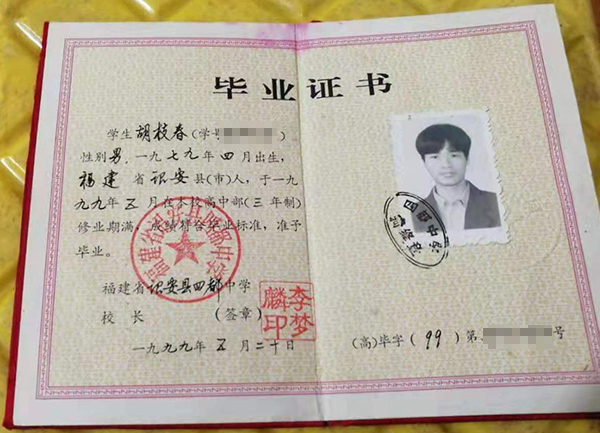 毕业证书
学生胡枝春(学号     )
性别男,一九七九年四月出生,
福建省诏安县(市)人,于一九
九九年五月在本校高中部(三年制)
修业期满,成绩符合毕业标准,准予
毕业。
福建省诏安县四都中学
校长 (签章)
李梦麟印
一九九九年五月二十日
(高)毕字(99)第     号